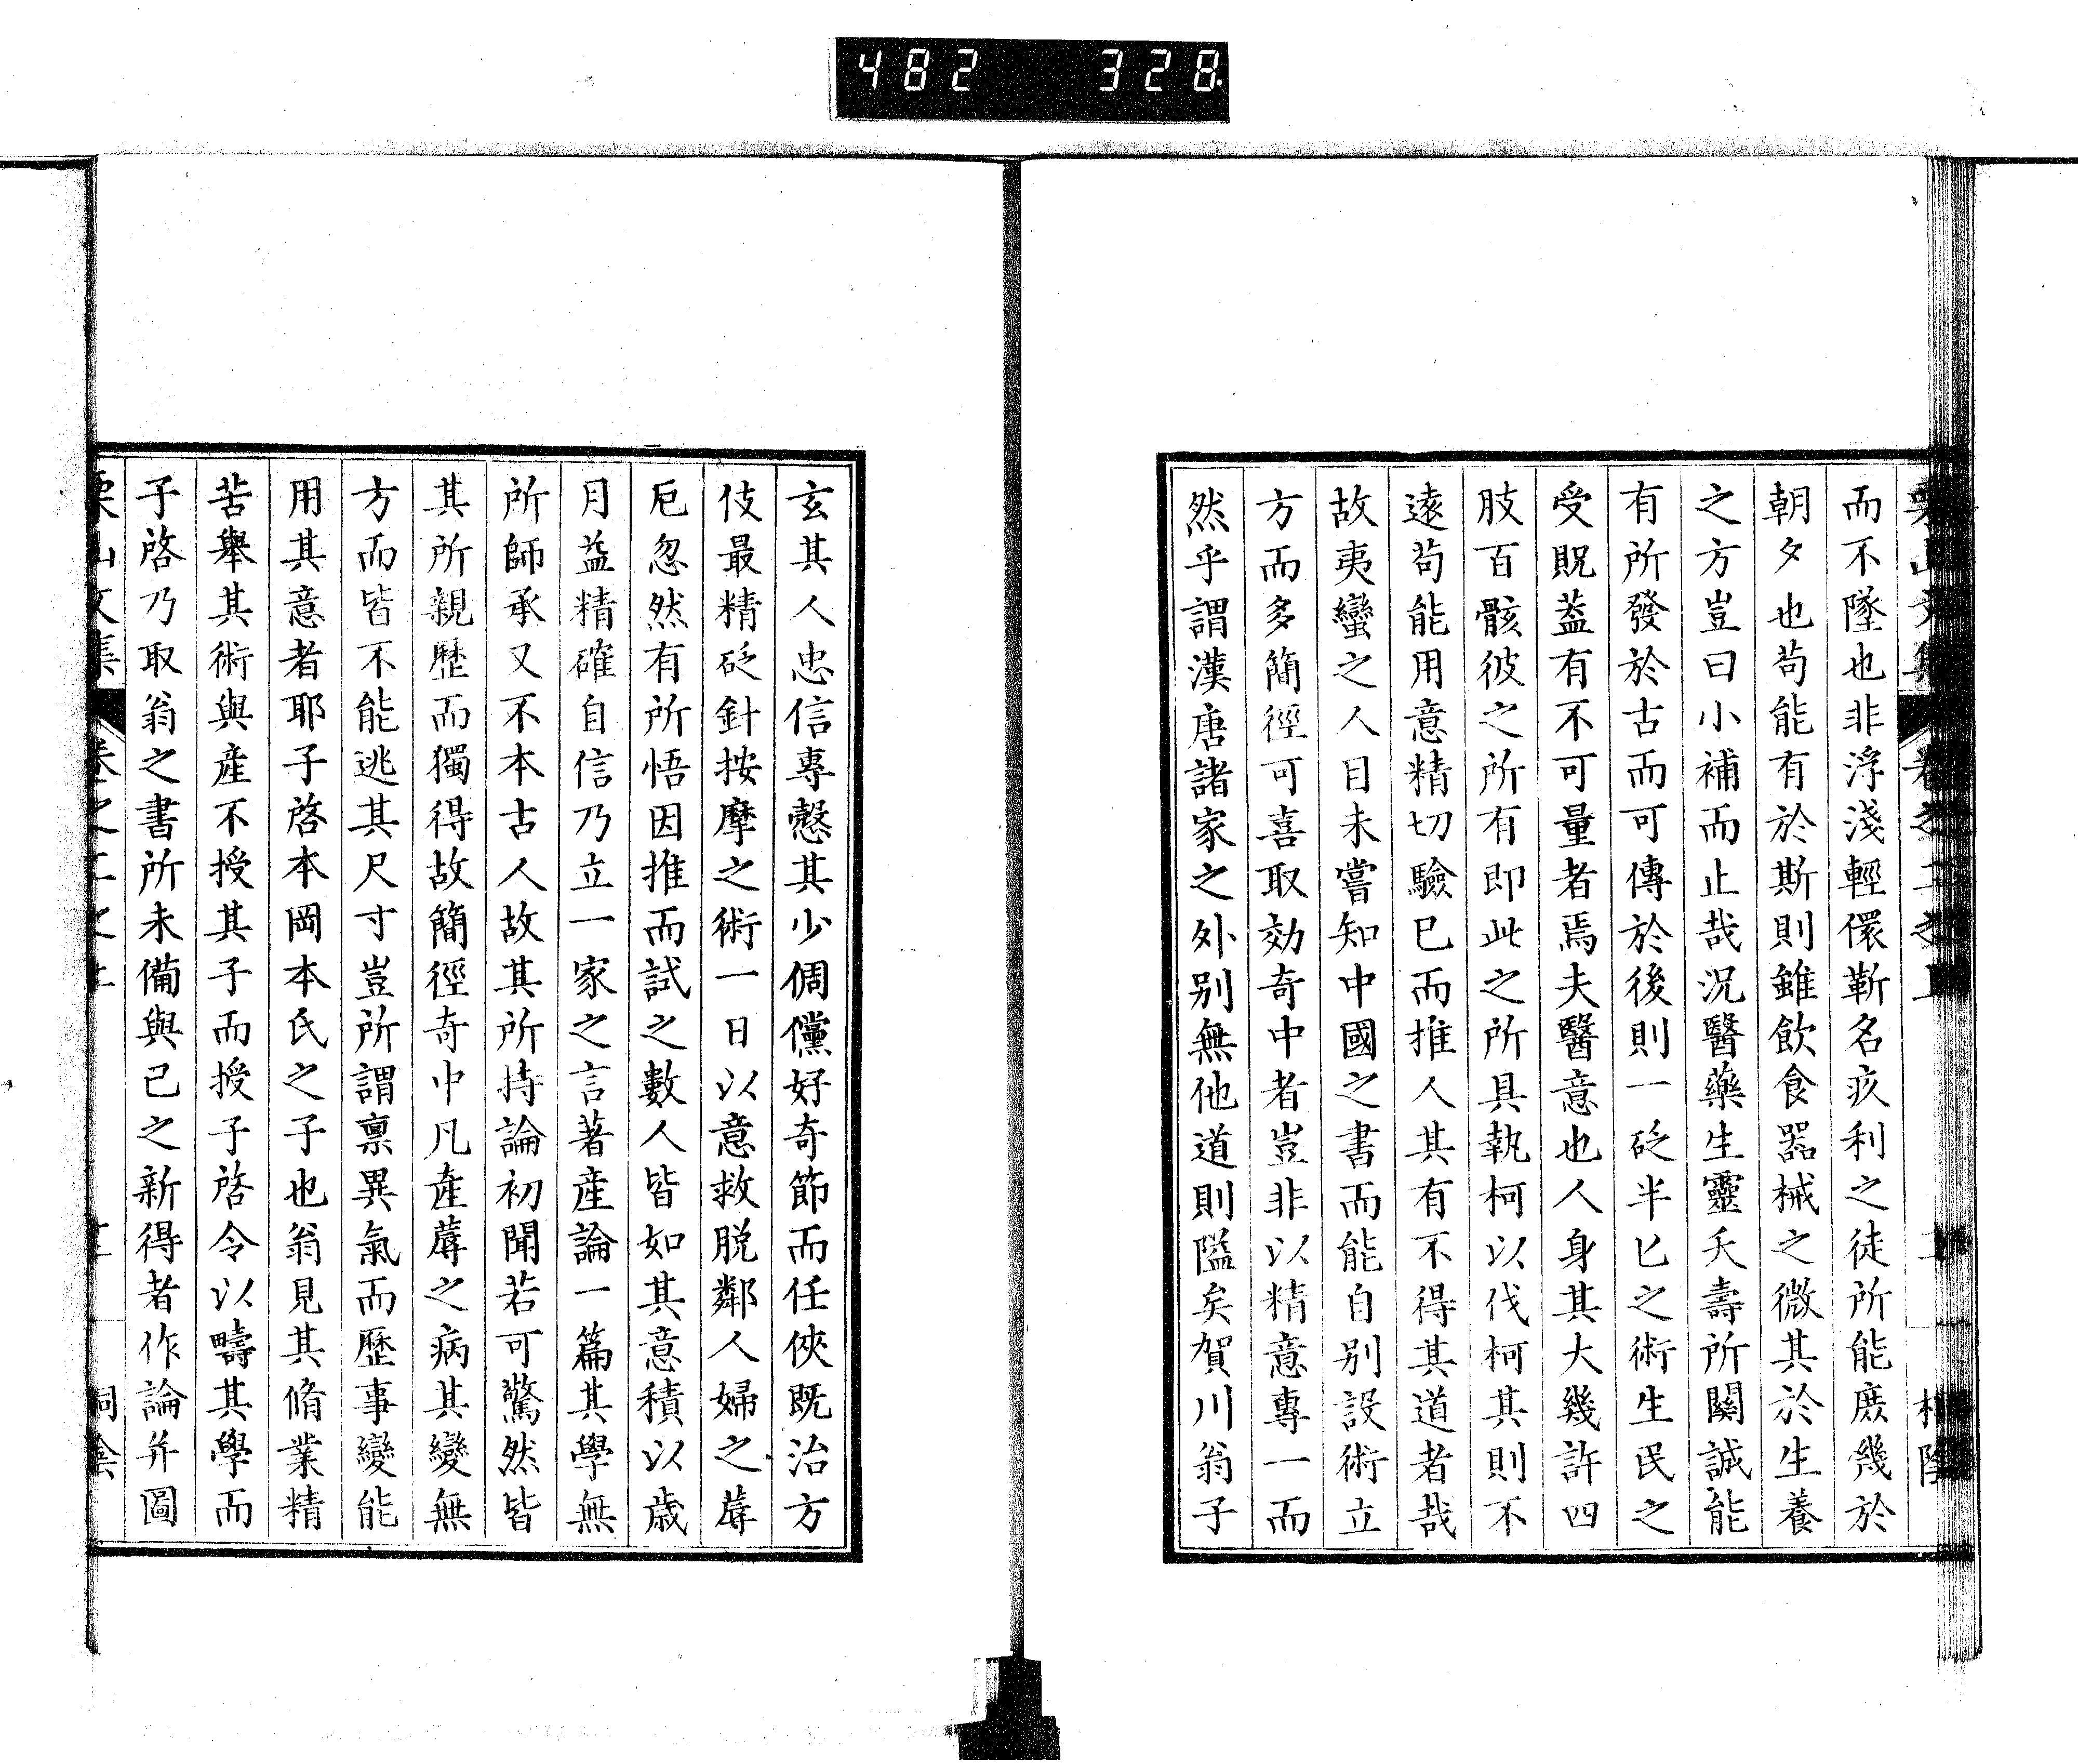 482 328
而不墜也非浮淺輕儇靳名疚利之徒所能庶幾於
朝夕也苟能有於斯則雖飲食器械之微其於生養
之方豈曰小補而止哉況醫藥生靈夭壽所關誠能
有所發於古而可傳於後則一砭半匕之術生民之
受貺蓋有不可量者焉夫醫意也人身其大幾許四
肢百骸彼之所有即此之所具執柯以伐柯其則不
遠苟能用意精切驗已而推人其有不得其道者哉
故夷蠻之人目未嘗知中國之書而能自別設術立
方而多簡徑可喜取効奇中者豈非以精意專一而
然乎謂漢唐諸家之外別無他道則隘矣賀川翁子
玄其人忠信專愨其少倜儻好奇節而任俠既治方
伎最精砭針按摩之術一日以意救脫鄰人婦之蓐
戹忽然有所悟因推而試之數人皆如其意積以歲
月益精確自信乃立一家之言著產論一篇其學無
所師承又不本古人故其所持論初聞若可驚然皆
其所親歷而獨得故簡徑奇中凡產蓐之病其變無
方而皆不能逃其尺寸豈所謂稟異氣而歷事變能
用其意者耶子啓本岡本氏之子也翁見其脩業精
苦舉其術與產不授其子而授子啓令以疇其學而
子啓乃取翁之書所未備與已之新得者作論并圖
栗山文集 卷之二之上